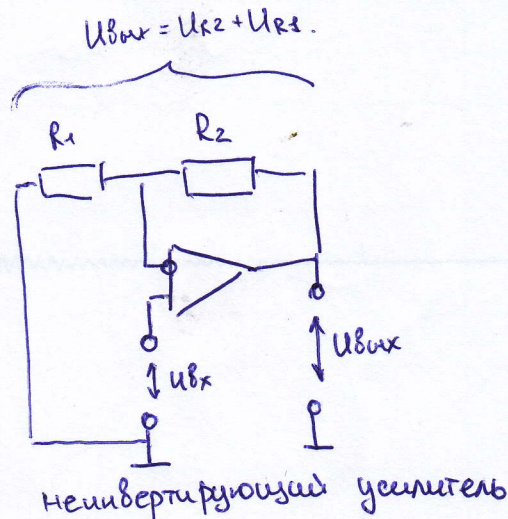 Uвых = UR2 + UR1.
R1 R2
Uвх
Uвых
неинвертирующий усилитель